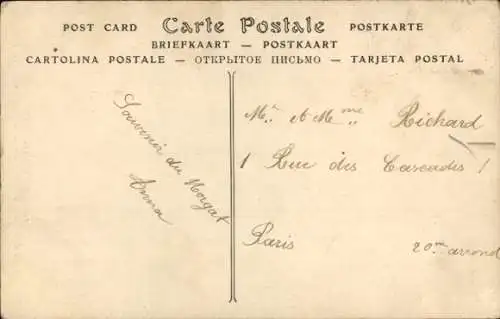 POST CARD Carte Postale POSTKARTE
BRIEFKAART - POSTKAART
CARTOLINA POSTALE - ОТКРЫТОЕ ПИСЬМО - TARJETA POSTAL
Souvenir du Morgat
Anna
Mr. et Mme Richard
1 Rue des Cascades 1
Paris 20me arrond